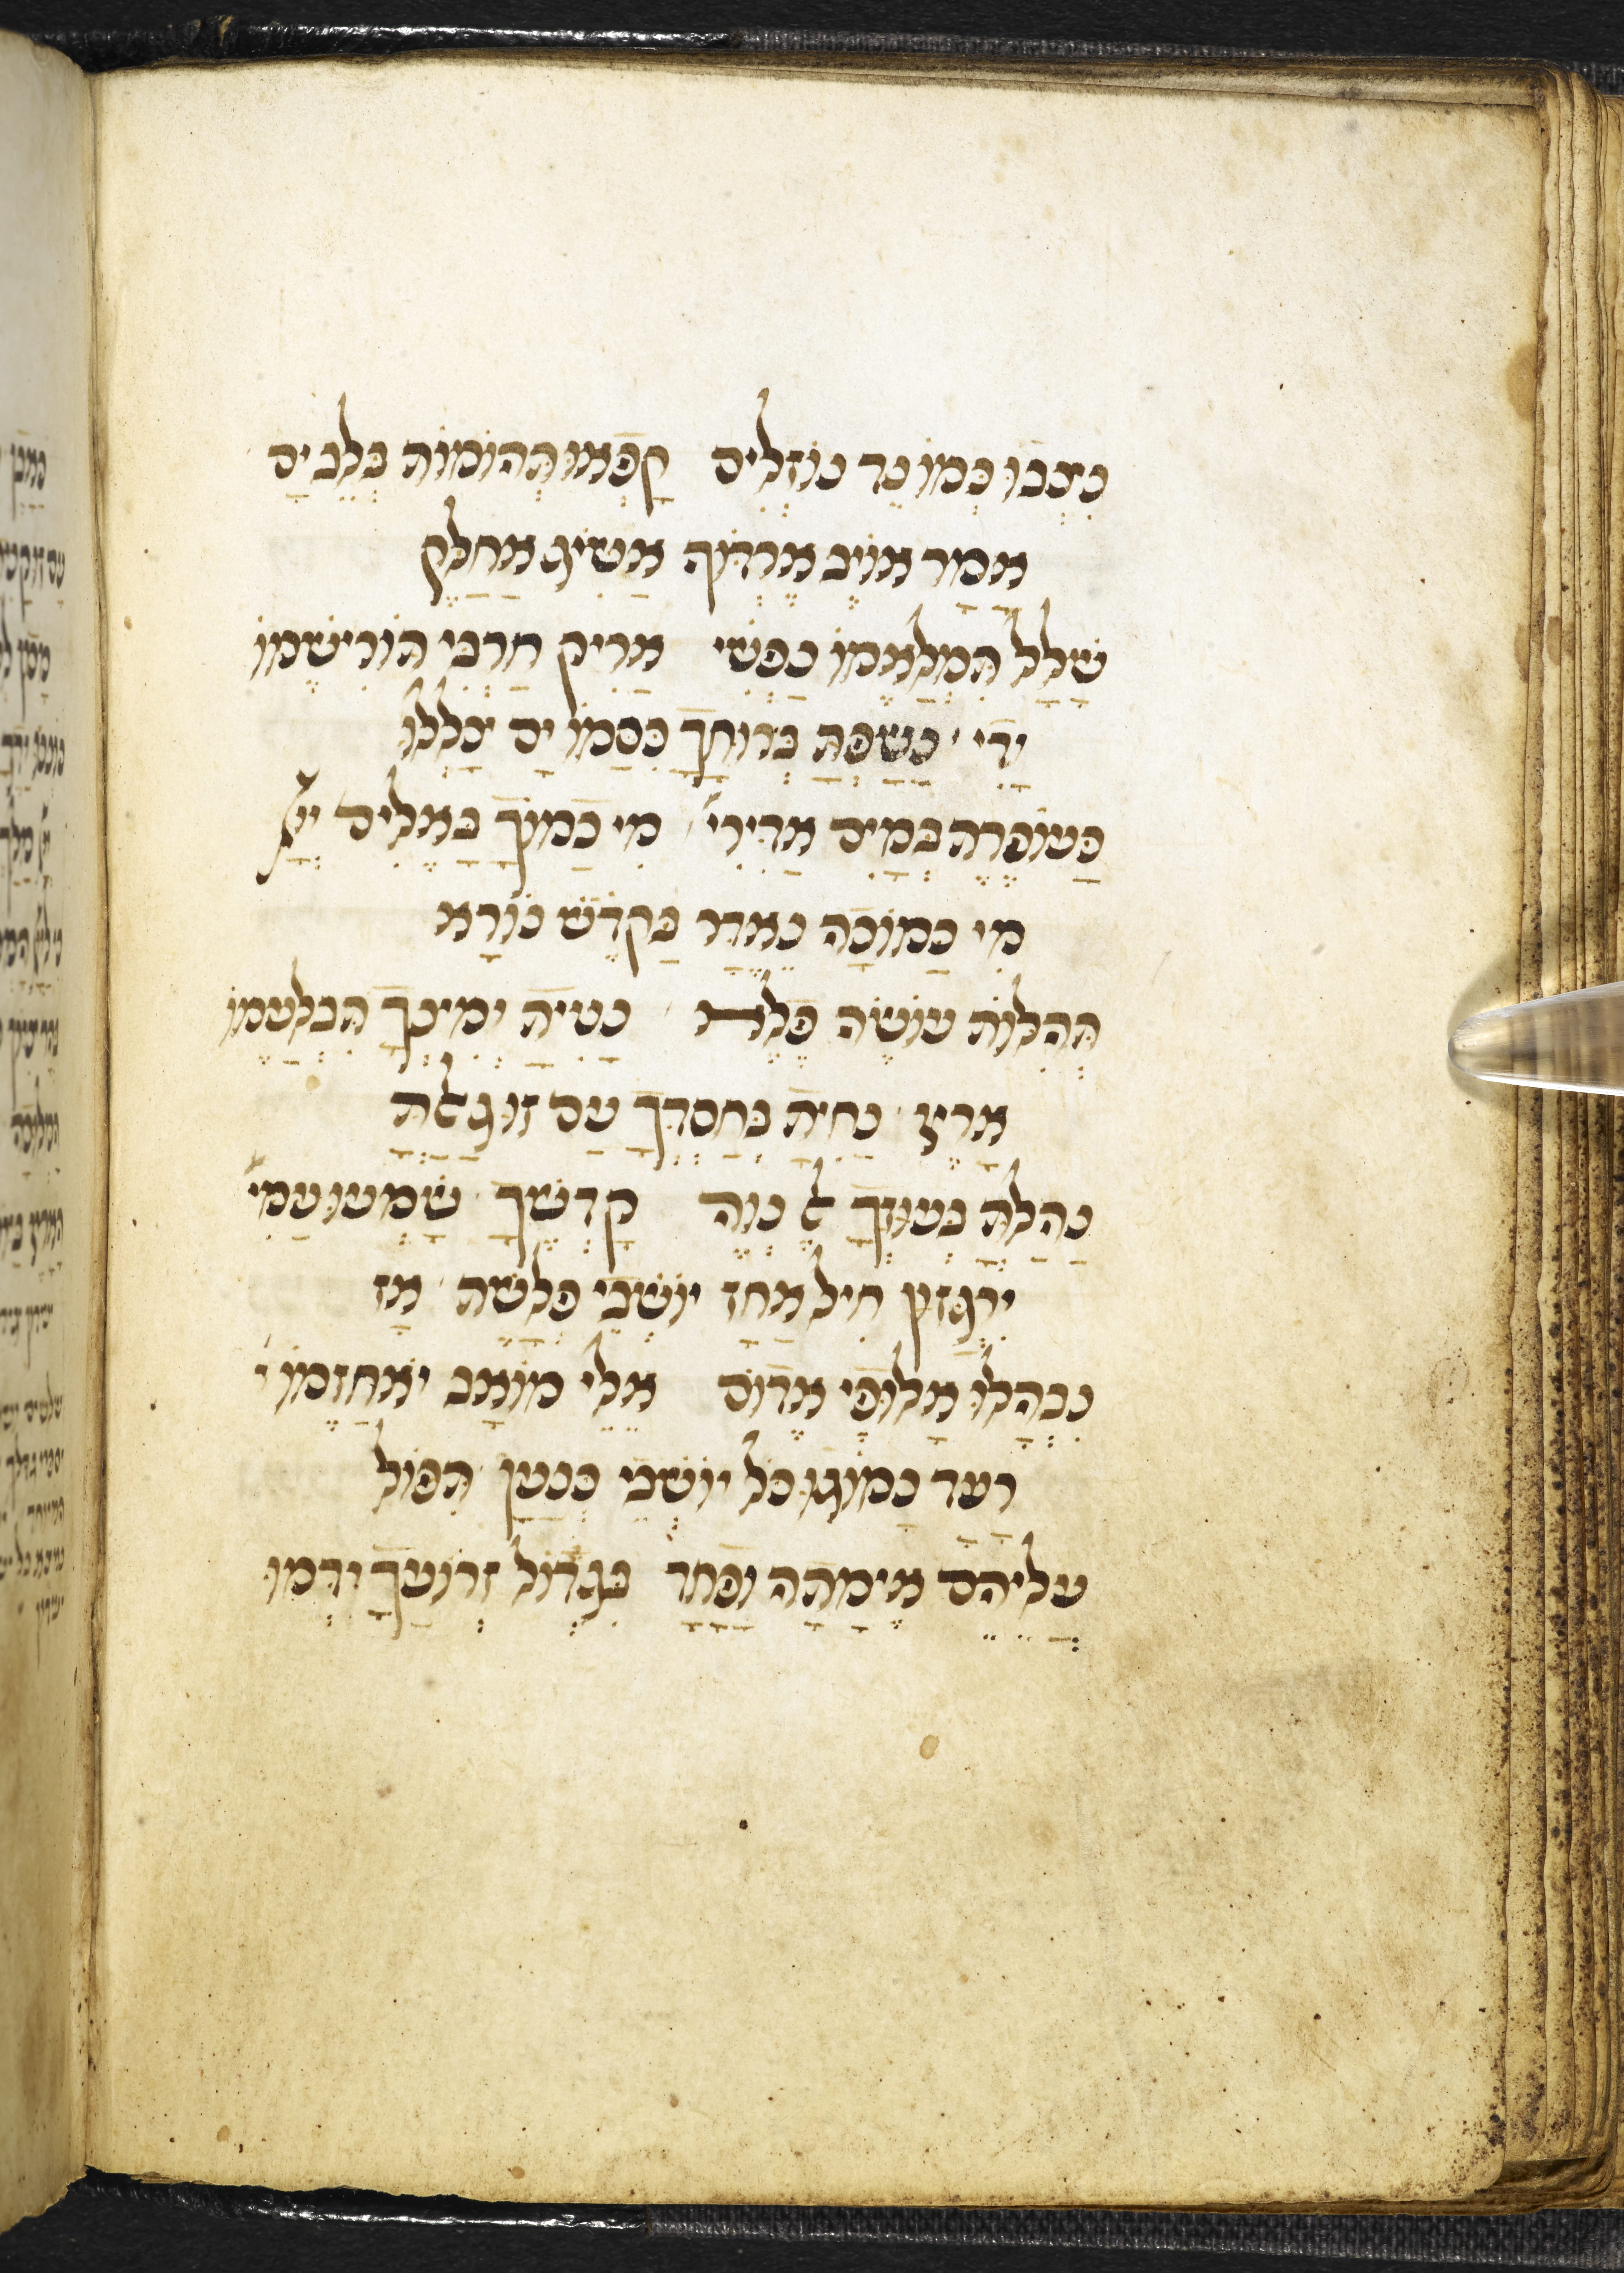 נִצְּבוּ כְּמוֹ נֵד נוֹזְלִים קָפְּאוּ תְּהוֹמוֹת בְּלֶב יָם
אָמַר אוֹיֵב אֶרְדּוֹף אַשִּׂיג אֲחַלֵּק
שָׁלָל תִּמְלָאֵמוֹ נַפְשִׁי אָרִיק חַרְבִּי תּוֹרִישֵׁמוֹ
יָדִי נָשַׁפְתָּ בְרוּחֲךָ כִּסָּמוֹ יָם צָלֲלוּ
כַּעוֹפֶרֶת בְּמַיִם אַדִּירִי מִי כָמוֹךָ בָּאֵלִים יְיָ
מִי כָּמוֹכָה נֶאְדָּר בַּקֹּדֶשׁ נוֹרָא
תְהִלּוֹת עוֹשֶׂה פֶלֶא נָטִיתָ יְמִינְךָ תִּבְלָעֵמוֹ
אָרֶץ נָחִיתָ בְחַסְדְּךָ עַם זוּ גָּאָלְתָּ
נֵהַלְתָּ בְעוּזְּךָ אֶל נְוֵה קָדְשֶׁךָ שָׁמְעוּ עַמִּי
יִרְגָּזוּן חִיל אָחַז יוֹשְׁבֵי פְּלָשֶׁת אָז
נִבְהֲלוּ אַלּוּפֵי אֱדוֹם אֵלֵי מוֹאָב יֹאחֲזֵמוֹ
רָעַד נָמוֹגוּ כֹּל יוֹשְׁבֵי כְנָעַן תִּפּוֹל
עֲלֵיהֶם אֵימָתָה וָפַחַד בִּגְדוֹל זְרוֹעֲךָ יִדְּמוּ